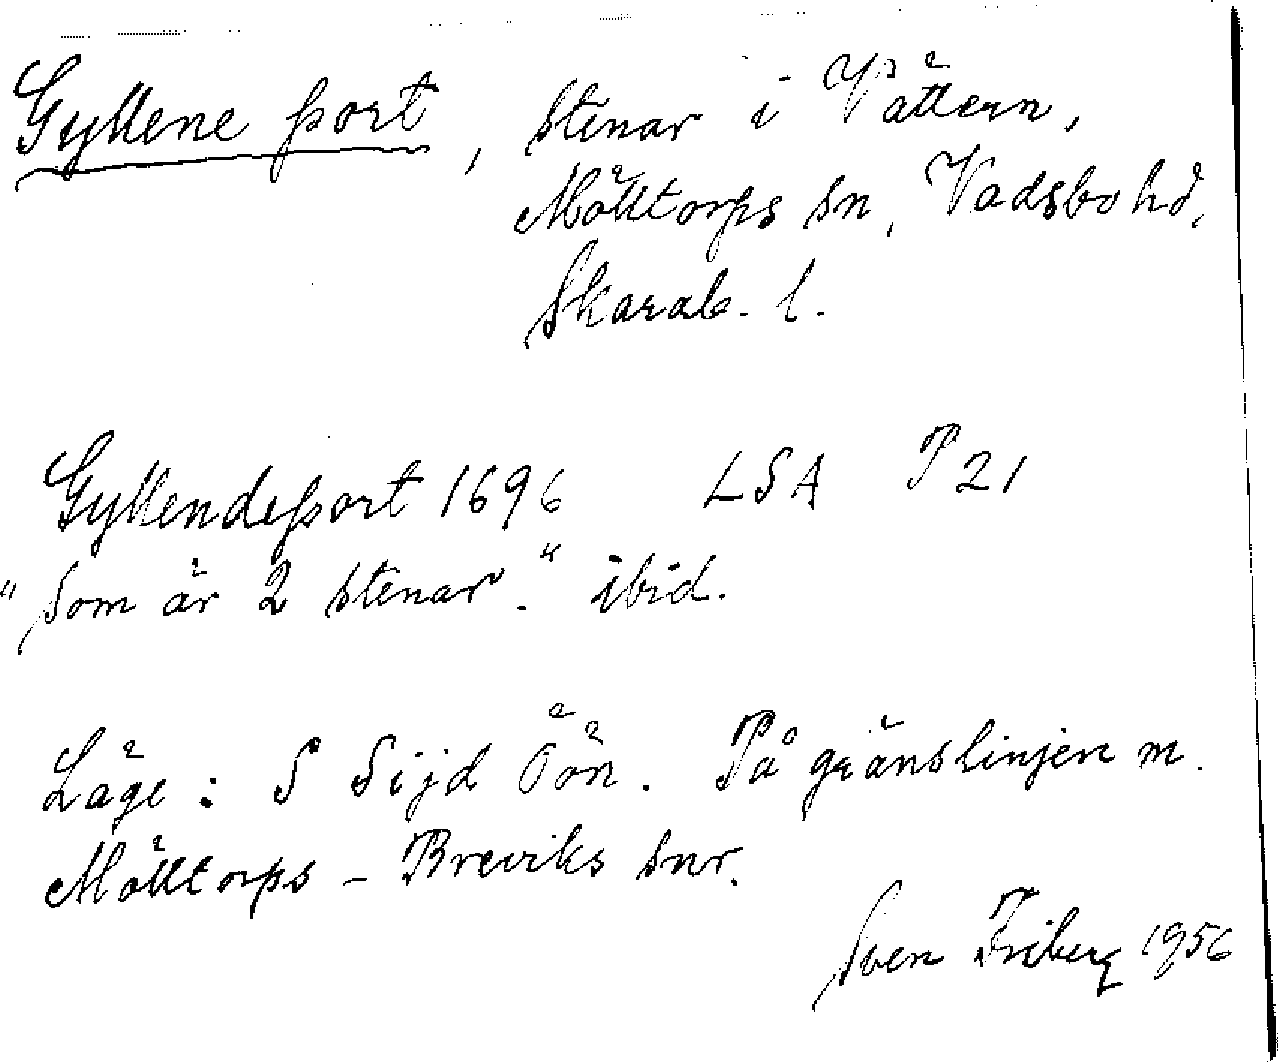 Gyllene port, stenar i Vättern,
Mölltorps sn, Vadsbo hd,
Skarab. l.
Gyllendeport 1696 LSA P21
"Som är 2 stenar." ibid.
Läge: S Sijd Öön. På gränslinjen m.
Mölltorps - Breviks snr.
Sven Friberg 1956